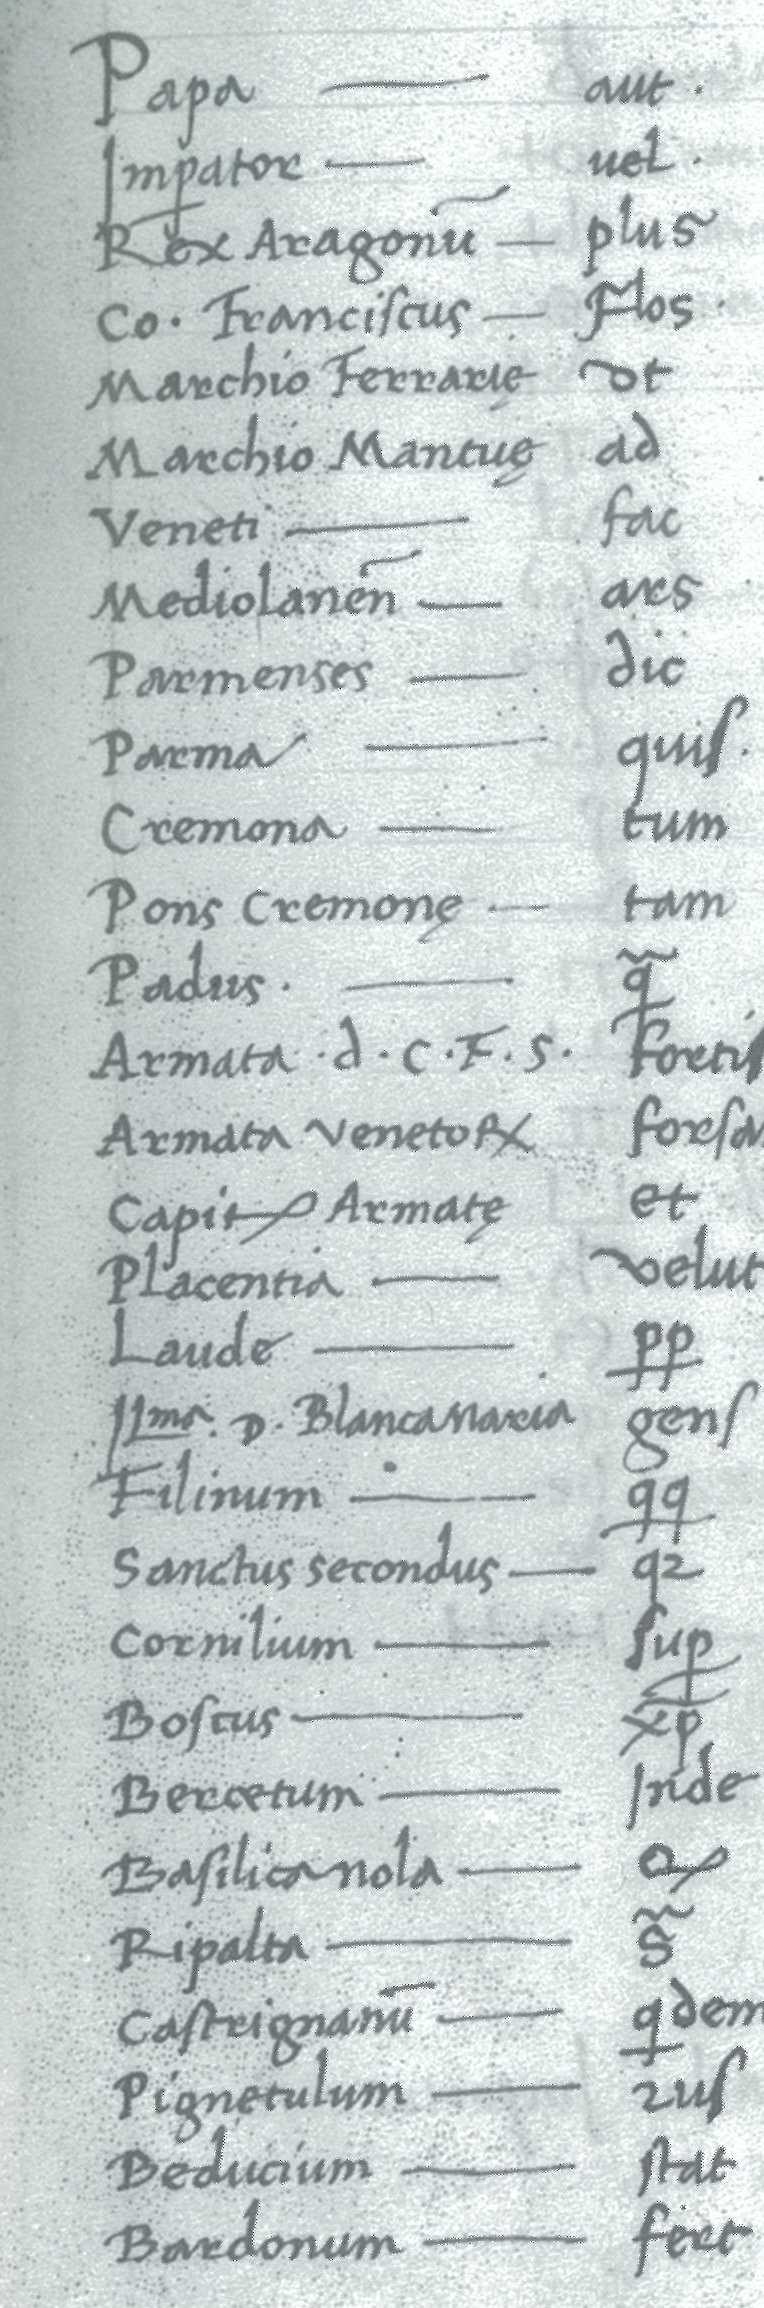 Papa — aut.
Impator — uel.
Rex Aragonū — plus
Co. Franciſcus — Flos.
Marchio Ferrarie vt
Marchio Mantuę ad
Veneti — fac
Mediolanen̄ — ars
Parmenses — dic
Parma — quiſ.
Cremona — tum
Pons Cremonę — tam
Padus. — q̃
Armata .d.C.F.S. fortiſ
Armata Venetoꝝ forſan
Capit Armatę et
Placentia — velut
Laude — pp
Illma. D. Blancamaria genſ
Filinum — qq
Sanctus secondus — q2
Cornilium — ſup
Boſcus — xp
Bercetum — Inde
Baſilicanola —
Ripalta — s̃
Caſtrignanū — qdem
Pignetulum — 2uſ
Beducium — ſtat
Bardonum — fert